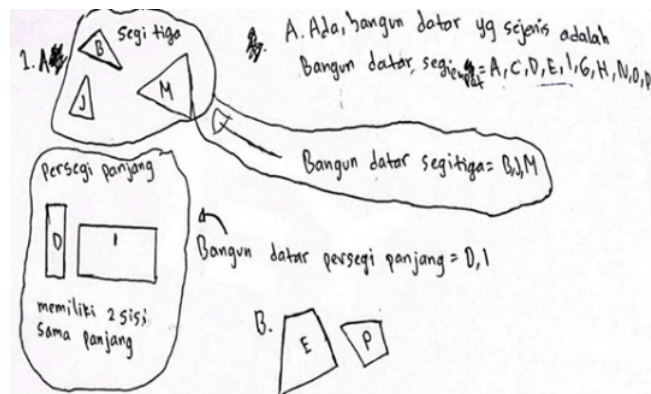 1. A
Segi tiga
B
J
M
A. Ada, bangun datar yg sejenis adalah
Bangun datar segiempat = A, C, D, E, I, G, H, N, O, P
Bangun datar segitiga = B, J, M
Persegi panjang
D
I
memiliki 2 sisi
sama panjang
Bangun datar persegi panjang = D, I
B.
E
P